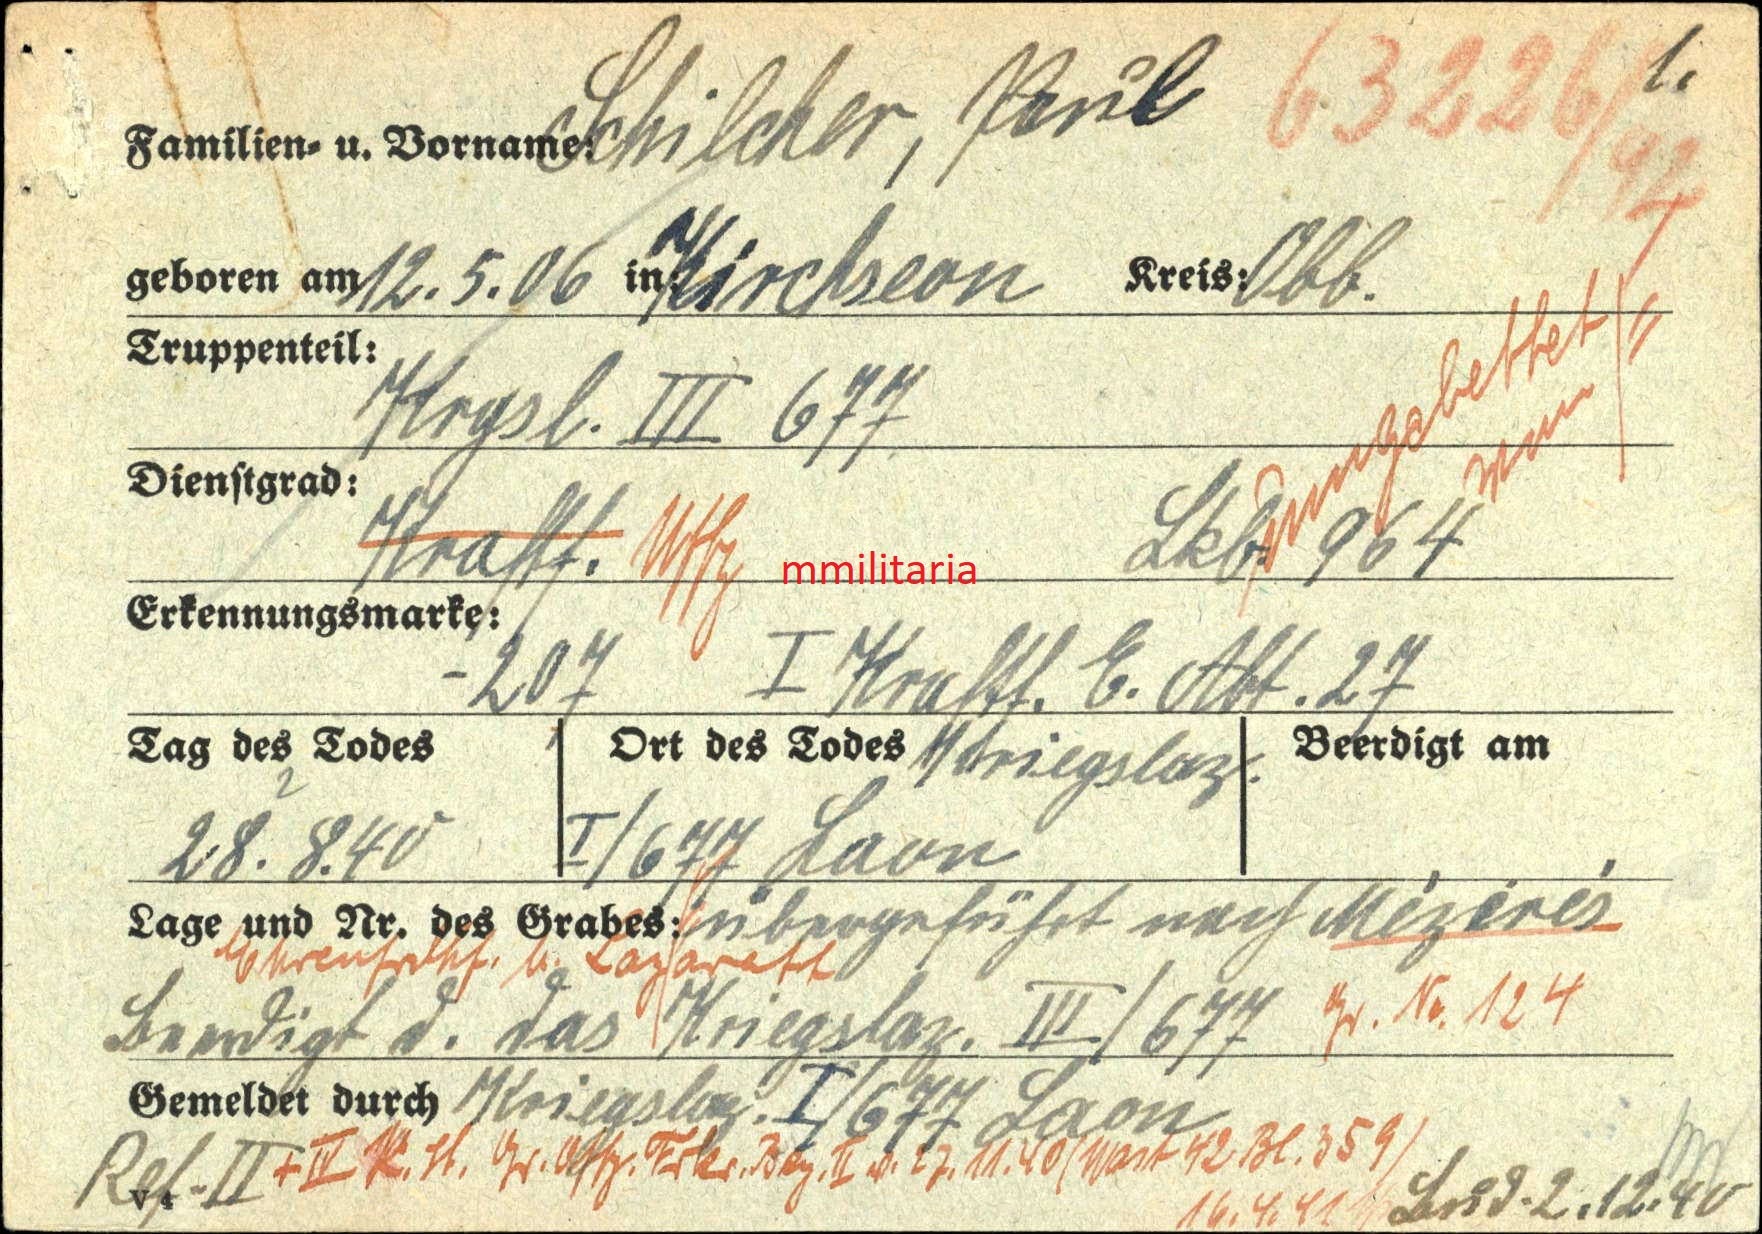 63226/42 1.
Familien- u. Vorname: Schilcher, Paul
geboren am 12.5.06 in: Kirchseon Kreis: Obb.
umgebettet
Truppenteil:
Krgsl. III 677
Dienstgrad:
Kraftf. Uffz Lkb. 964
mmilitaria
Erkennungsmarke:
-207 I Kraftf. E. Abt. 27
Tag des Todes Ort des Todes Kriegslaz. Beerdigt am
28. 8.40 I/677 Laon
Lage und Nr. des Grabes: überführt nach Mézières
Ehrenfrdhf. Lazarett
Beerdigt d. das Kriegslaz. III/677 Gr. Nr. 124
Gemeldet durch Kriegslaz. I/677 Laon
Ref-II + IV K. St. Gr. Offz. Frkr. Bez. II v. 27.11.40 (Wast 42 Bl. 359/
V 4 16.4.41 2.12.40